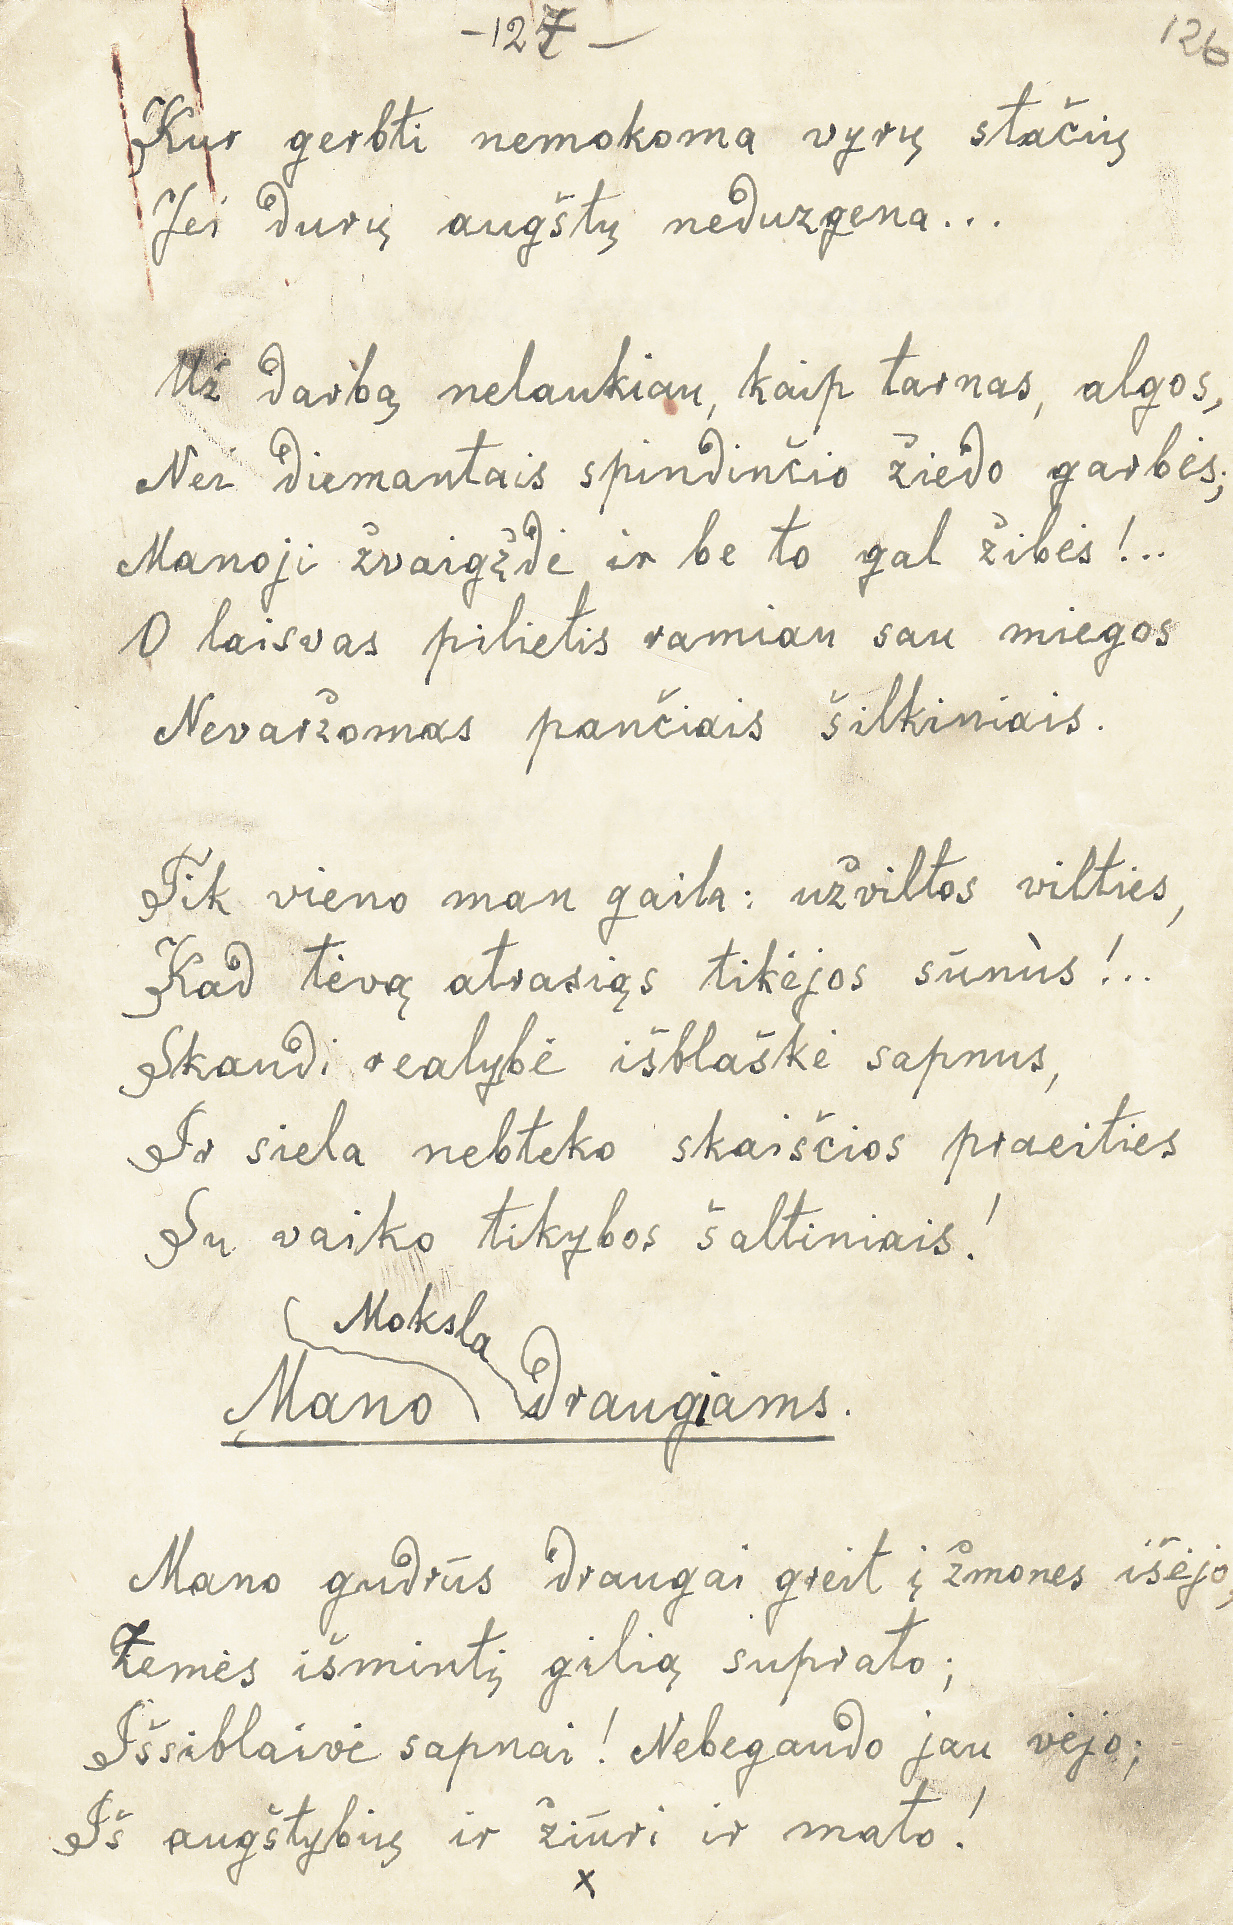 -127-
126
Kur gerbti nemokoma vyrų stačių
Jei durų augštų neduzgena...
Už darbą nelaukiau, kaip tarnas, algos,
Nei diemantais spindinčio žiedo garbės;
Manoji žvaigždė ir be to gal žibės!..
O laisvas pilietis ramiau sau miegos
Nevaržomas pančiais šilkiniais.
Tik vieno man gaila: užviltos vilties,
Kad tėvą atrasiąs tikėjos sūnùs!..
Skaudi realybė išblaškė sapnus,
Ir siela nebteko skaisčios praeities
Su vaiko tikybos šaltiniais!
Moksla
Mano draugiams.
Mano gudrūs draugai greit į žmones išėjo,
Žemės išmintį gilią suprato;
Išsiblaivė sapnai! Nebegaudo jau vėjo;
Iš augštybių ir žiūri ir mato!
x